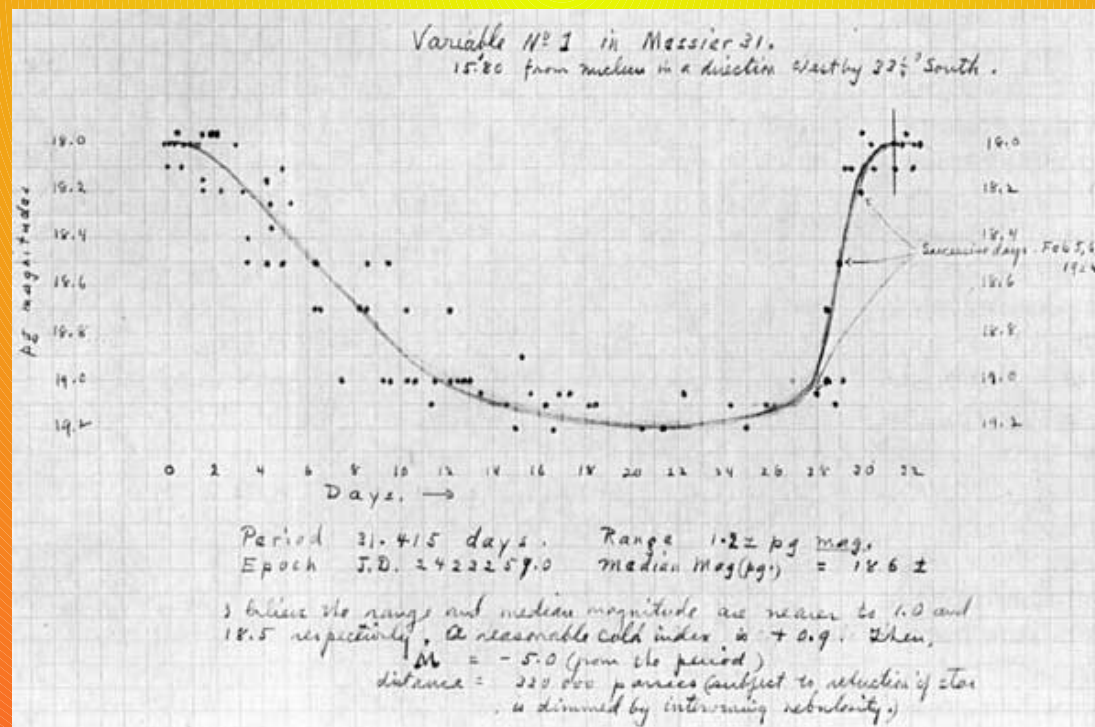 Variable Nº 1 in Messier 31.
15.'80 from nucleus in a direction West by 33½° South.
18.0
18.2
18.4
18.6
18.8
19.0
19.2
pg magnitudes
18.0
18.2
18.4
18.6
18.8
19.0
19.2
Successive days. Feb 5, 6
0 2 4 6 8 10 12 14 16 18 20 22 24 26 28 30 32
Days. →
Period 31.415 days. Range 1.2± pg mag.
Epoch J.D. 2423259.0 Median Mag (pg.) = 18.6 ±
I believe the range and median magnitude are nearer to 1.0 and
18.5 respectively. A reasonable color index is + 0.9 Then,
M = - 5.0 (from the period)
distance = 320 000 parsecs (subject to reduction if star
is dimmed by intervening nebulosity.)